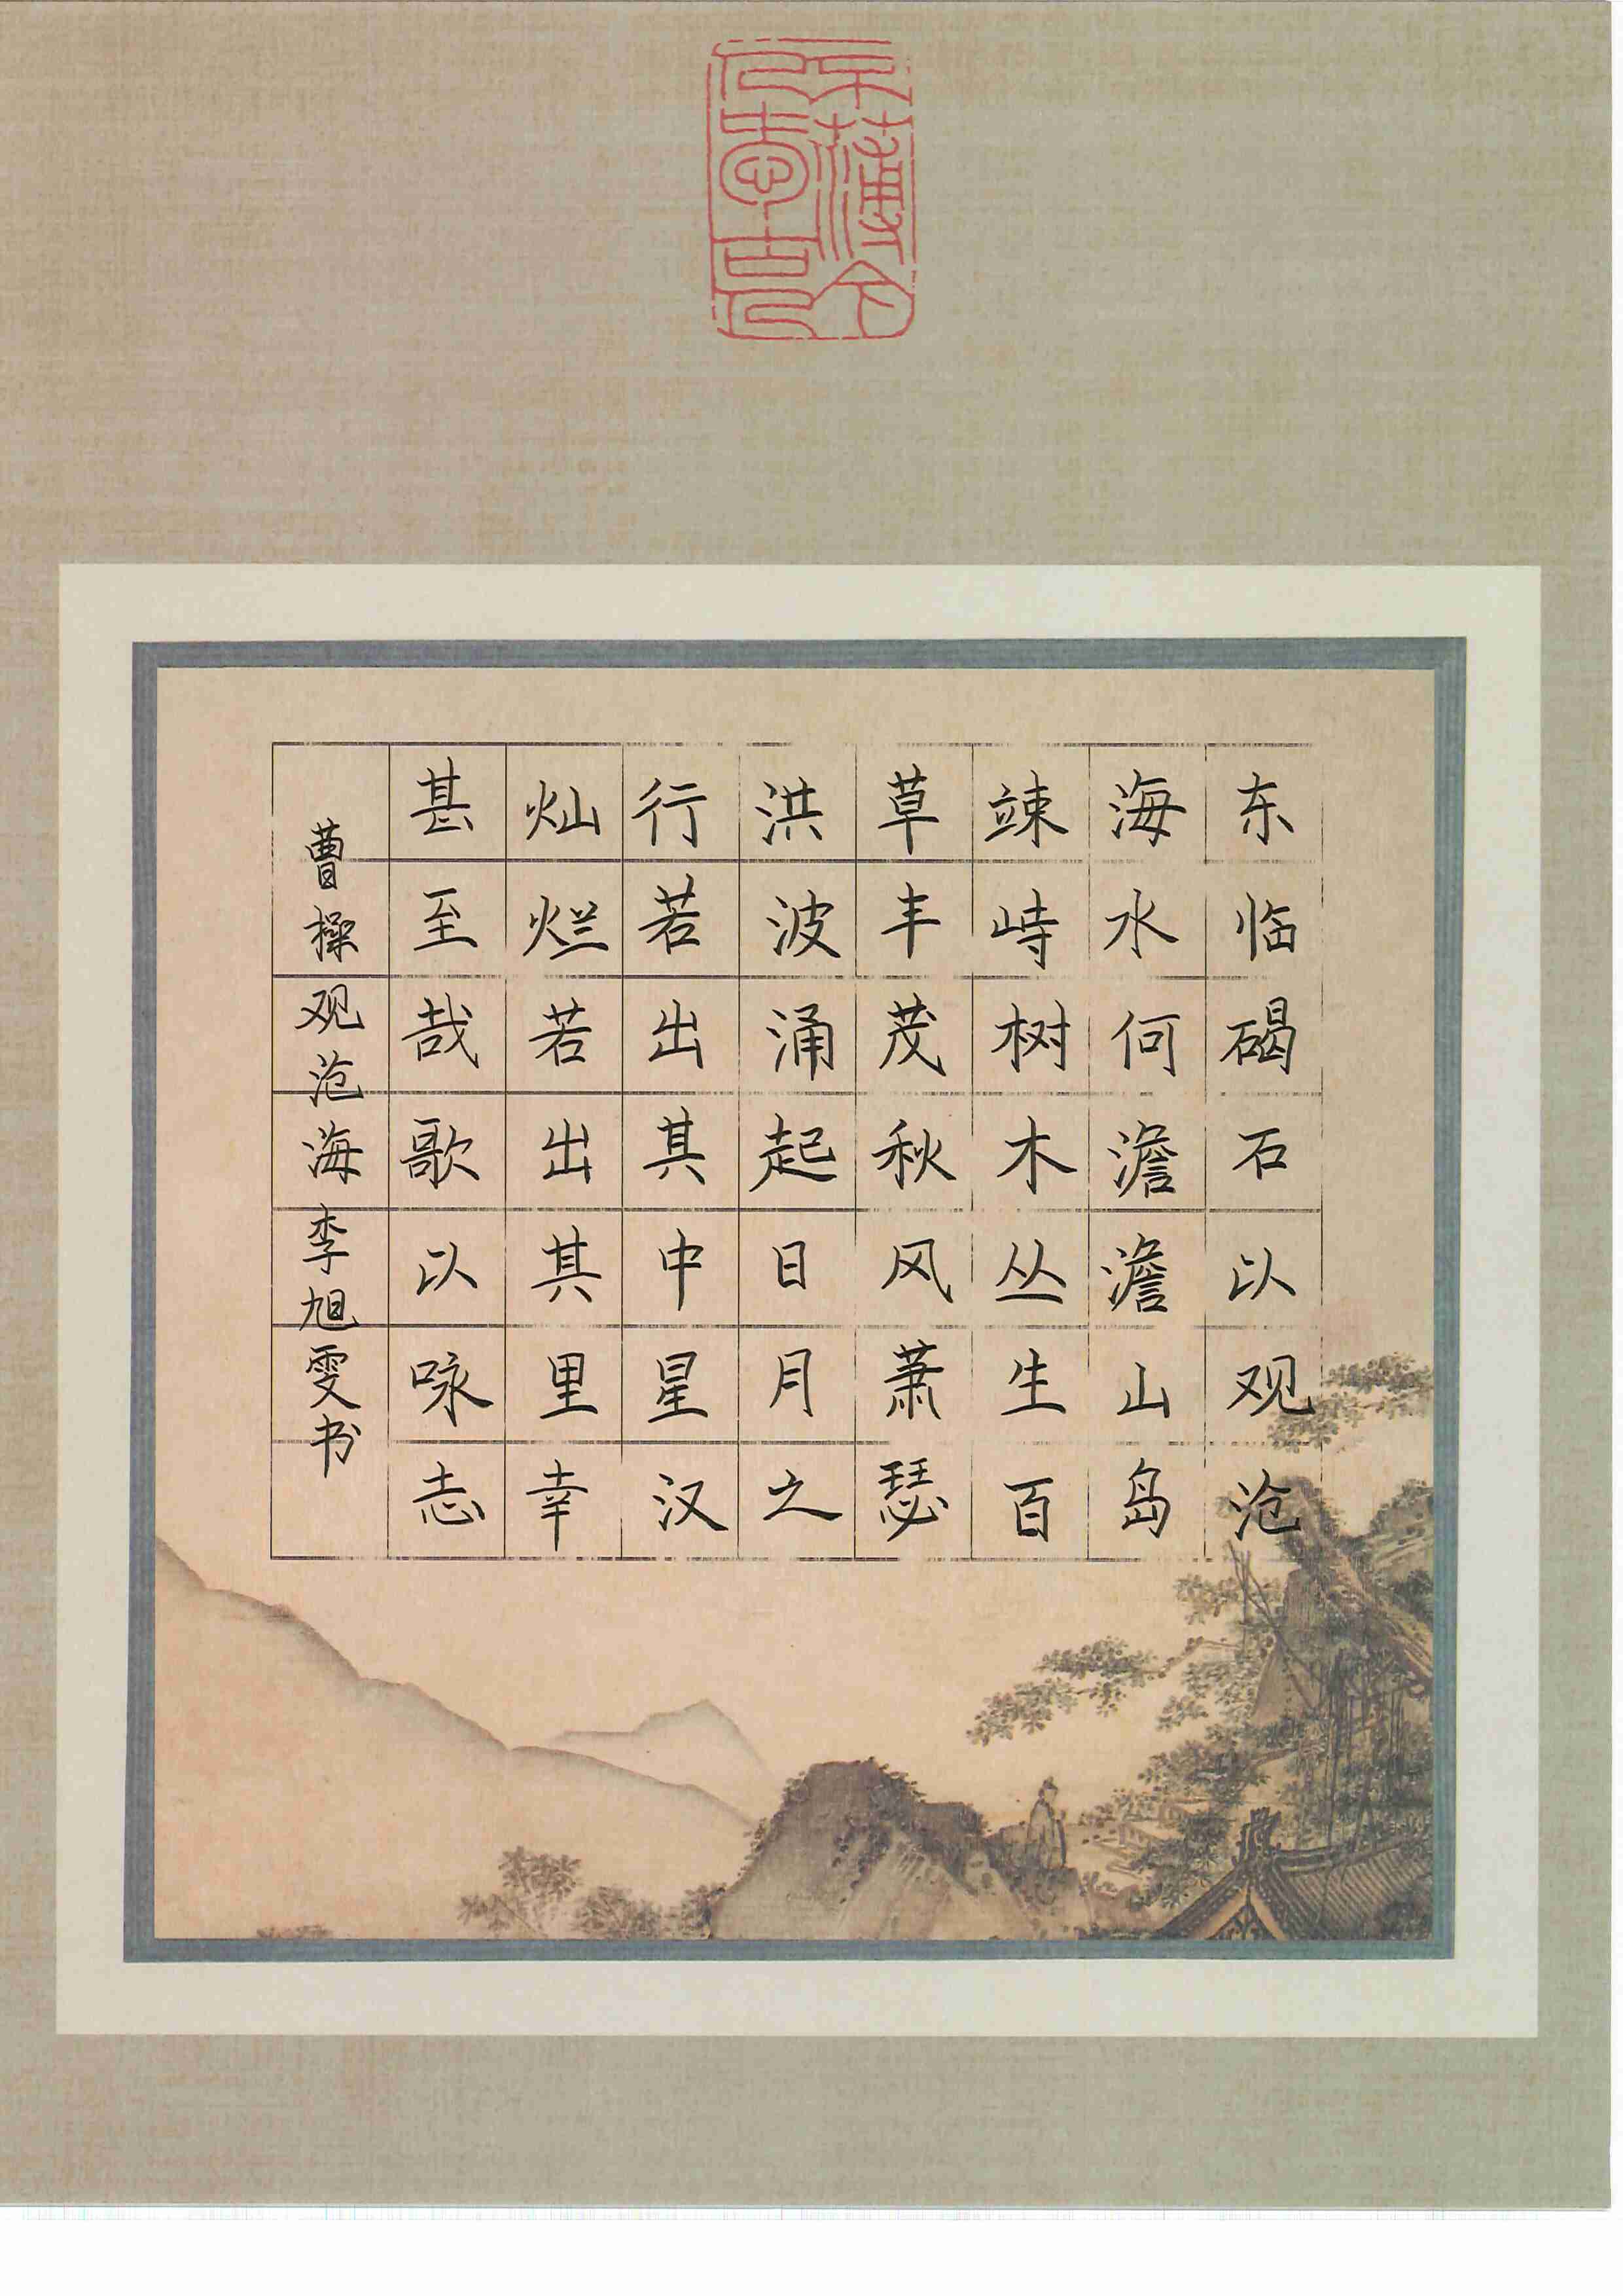 不薄今
人爱古人
东临碣石以观沧
海水何澹澹山岛
竦峙树木丛生百
草丰茂秋风萧瑟
洪波涌起日月之
行若出其中星汉
灿烂若出其里幸
甚至哉歌以咏志
曹操观沧海李旭雯书